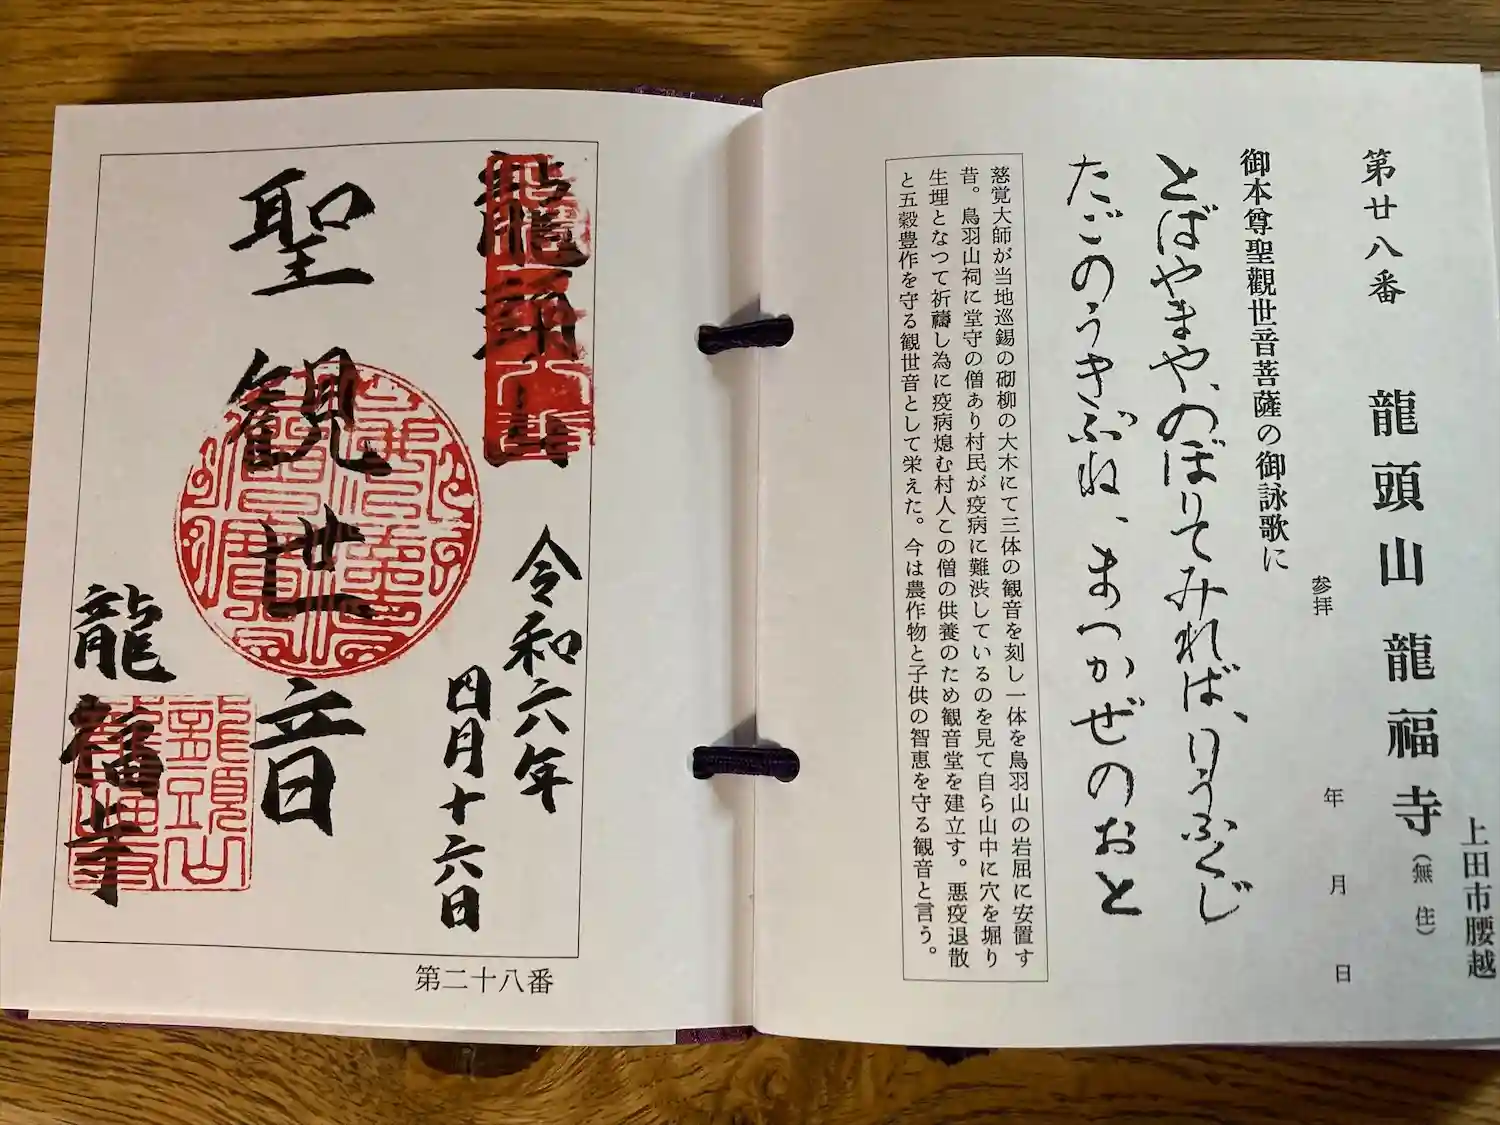 第廿八番 龍頭山 龍福寺(無住)
上田市腰越
参拝 年 月 日
御本尊聖觀世音菩薩の御詠歌に
とばやまや、のぼりてみれば、りうふくじ
たごのうきぶね、まつかぜのおと
慈覚大師が当地巡錫の砌柳の大木にて三体の観音を刻し一体を鳥羽山の岩屈に安置す
昔。鳥羽山祠に堂守の僧あり村民が疫病に難渋しているのを見て自ら山中に穴を堀り
生埋となつて祈禱し為に疫病熄む村人この僧の供養のため観音堂を建立す。悪疫退散
と五穀豊作を守る観世音として栄えた。今は農作物と子供の智恵を守る観音と言う。
龍頭山
令和六年
四月十六日
聖観世音
龍福寺
龍頭山
龍福寺
第二十八番